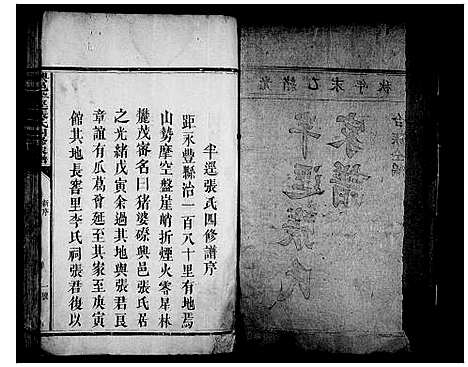 半逕張氏四修譜序
距永豐縣治一百八十里有地焉
山勢摩空盤崖峭折煙火零星林
叢茂審名曰猪婆磜與邑張氏居
之光緒戊寅余過其地與張君艮
章誼有瓜葛眷延至其家至庚寅
館其地長富里李氏祠張君復以
新序
一號
光緒乙未年秋
半逕張氏
家譜